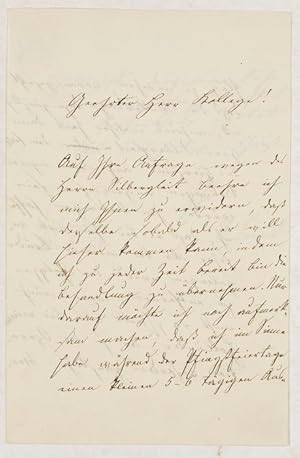 Geehrter Herr Kollege!
Auf Ihre Anfrage wegen des
Herrn Silbergleit beehre ich
mich Ihnen zu erwidern, daß
derselbe sobald als er will
hieher kommen kann, indem
ich zu jeder Zeit bereit bin die
Behandlung zu übernehmen. Nur
darauf möchte ich noch aufmerk-
sam machen, daß ich im Sinne
habe während der Pfingstfeiertage
einen kleinen 5-6 tägigen Aus-